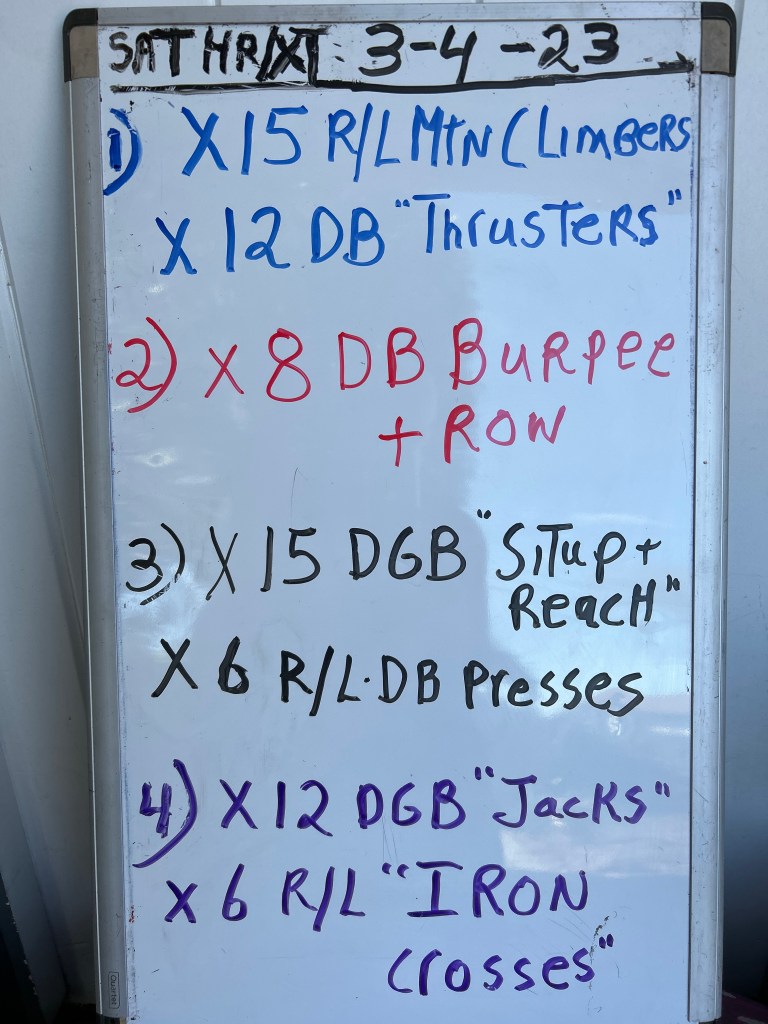 SAT HR/XT: 3-4-23
1) X 15 R/L MtN CLimBeRS
X 12 DB "ThrusTeRS"
2) X 8 DB BuRpee
+ ROW
3) X 15 DGB "SiTup +
ReacH"
X 6 R/L·DB Presses
4) X 12 DGB "JacKs"
X 6 R/L "IRON
Crosses"
Quartet